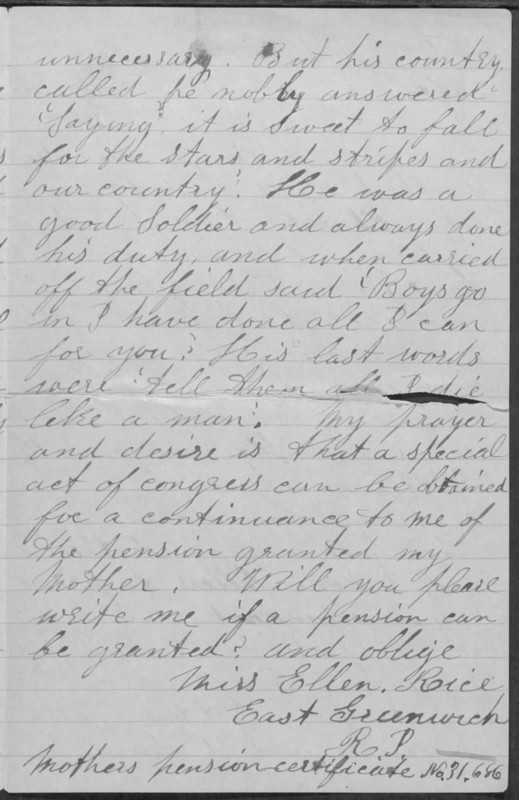 unnecessary. But his country
called he nobly answered
'Saying, it is Sweet to fall
for the stars and stripes and
our country'. He was a
good Soldier and always done
his duty, and when carried
off the field said 'Boys go
in I have done all I can
for you'. His last words
were 'tell them all I die
like a man'. My prayer
and desire is that a special
act of congress can be obtained
for a continuance to me of
the pension granted my
Mother. Will you please
write me if a pension can
be granted? and oblige
Miss Ellen. Rice
East Greenwich
R. I.
Mothers pension certificate No. 31,686